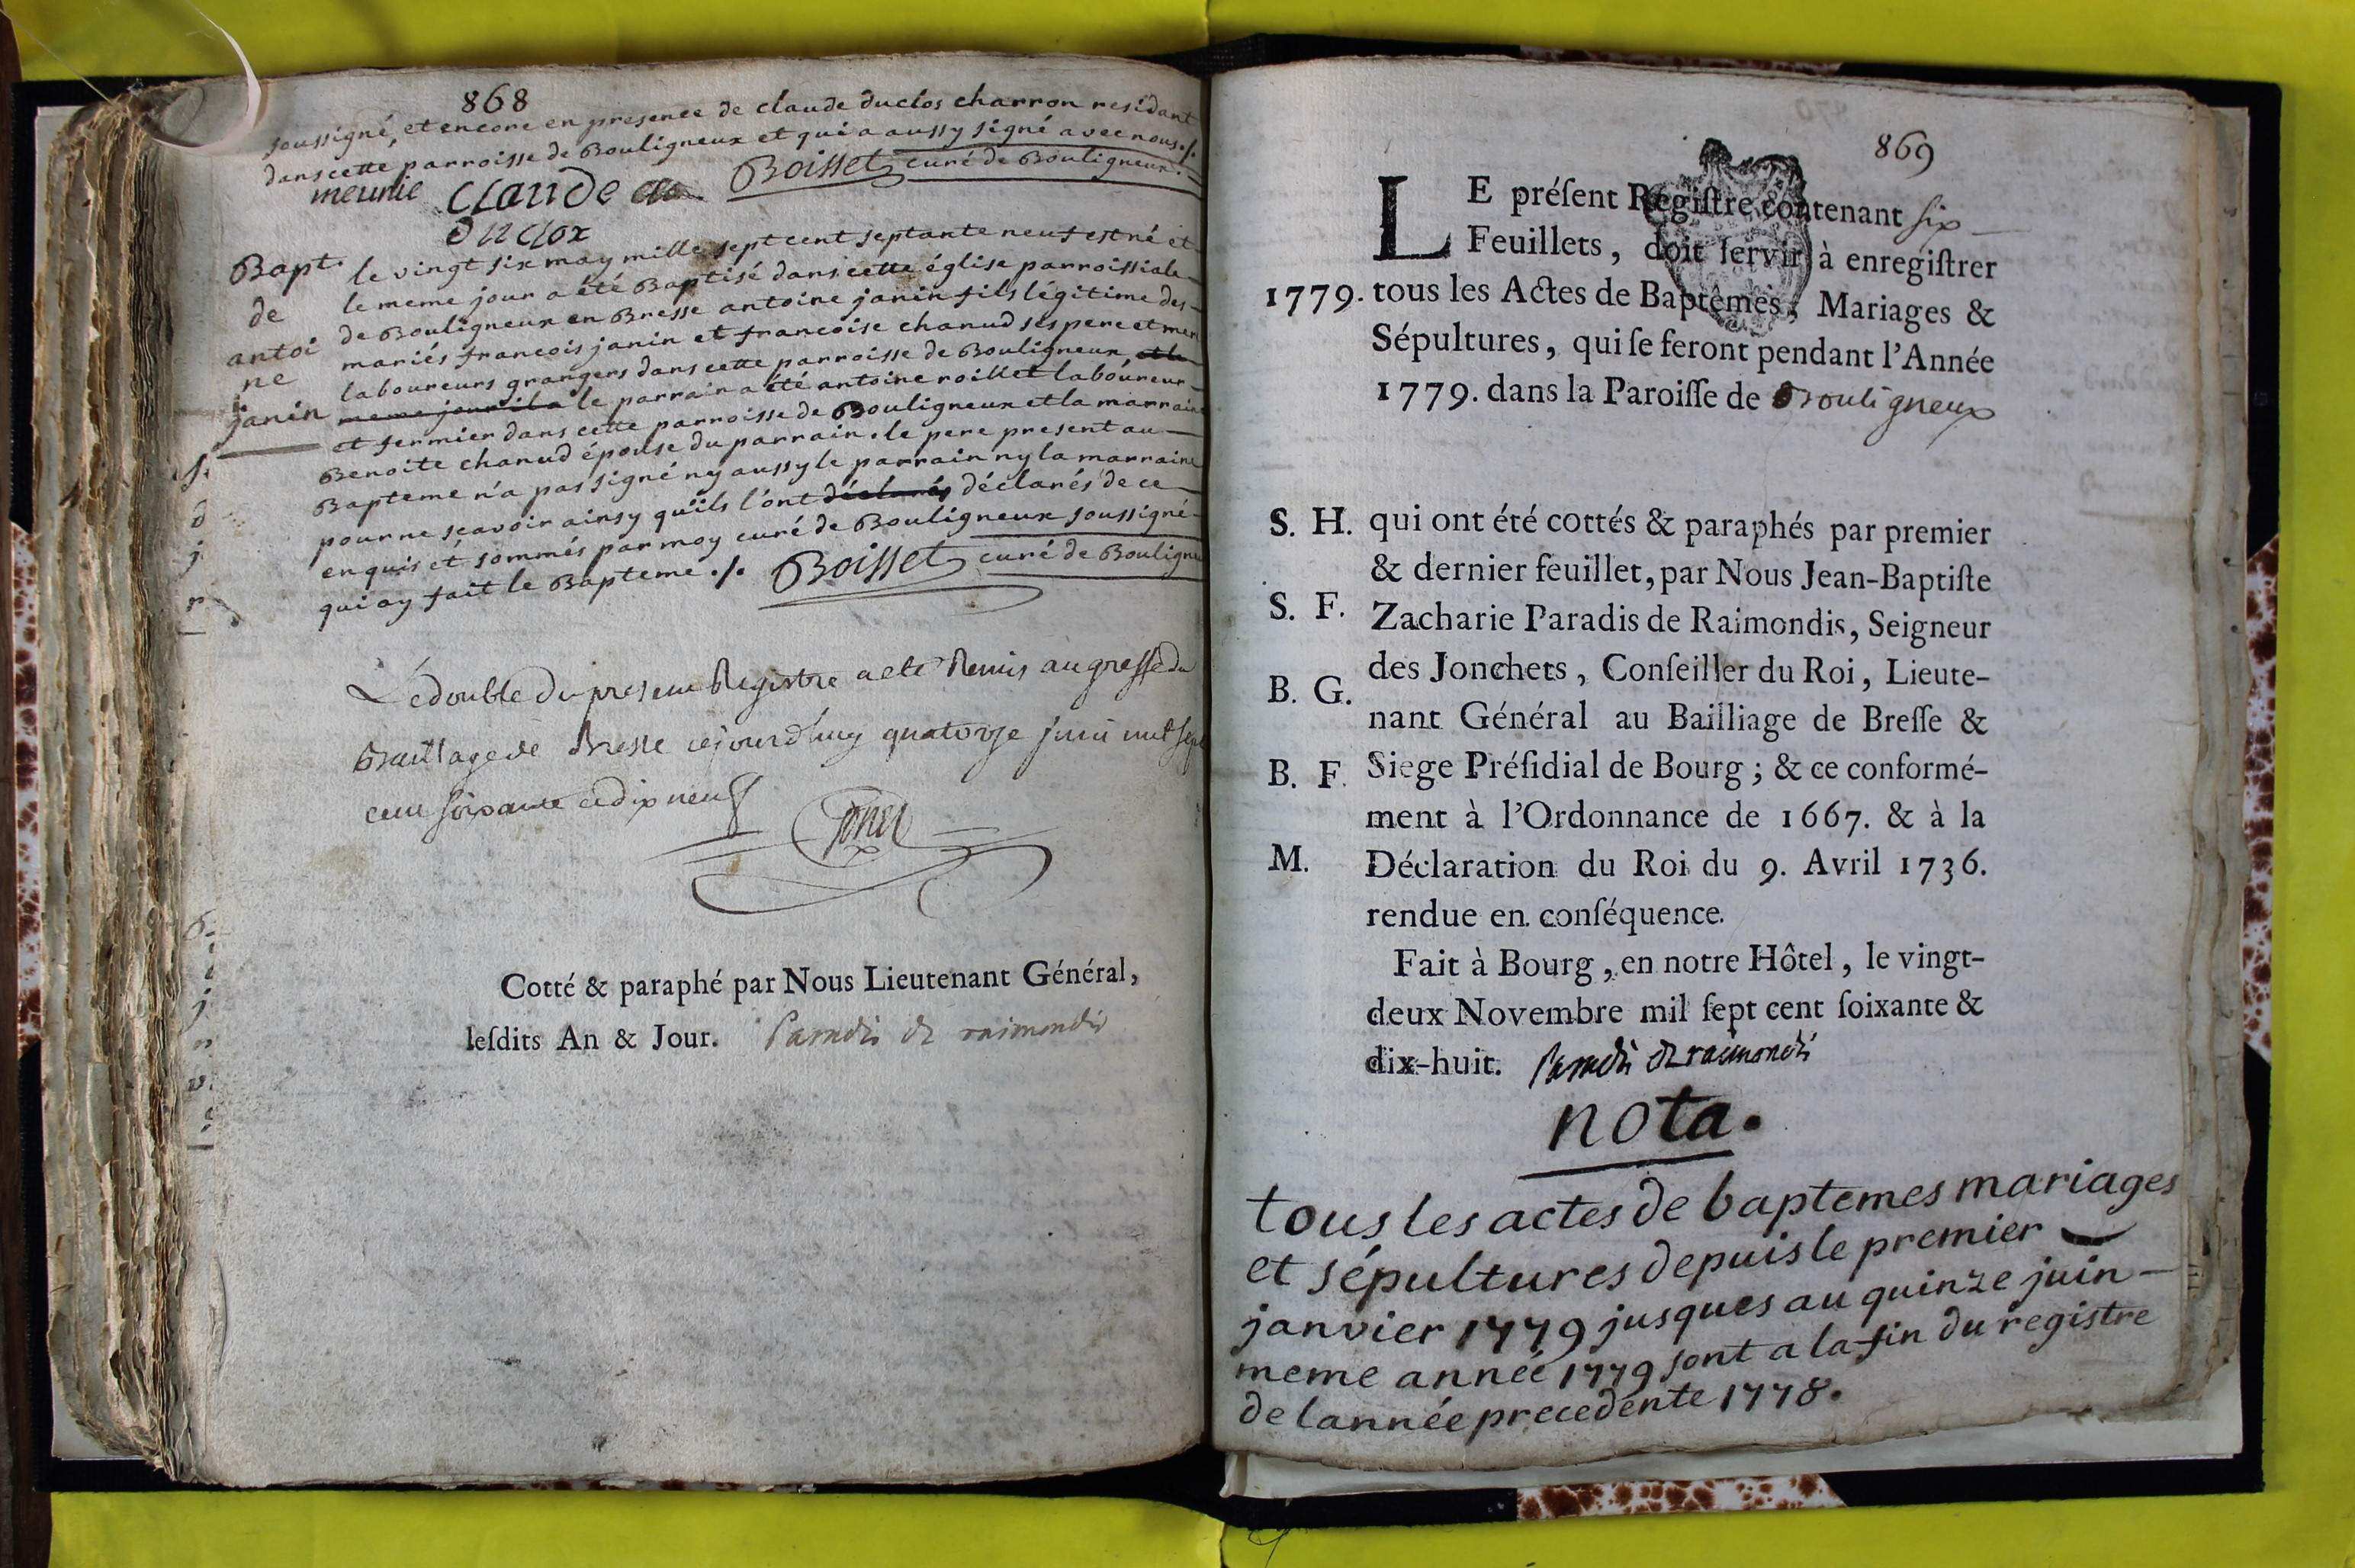 868
soussigné, et encore en presence de claude duclos charron residant
dans cette parroisse de Bouligneux et qui a aussy signé avec nous ./.
meunié claude du Boisset curé de Bouligneux.
duclox
Bapt. le vingt six may mille sept cent septante neuf est né et
de le meme jour a été Baptisé dans cette église parroissiale
antoi de Bouligneux en Bresse antoine janin fils légitime des
ne mariés francois janin et francoise chanud ses pere et mere
janin laboureurs grangers dans cette parroisse de Bouligneux, et le
meme jour il a le parrain a été antoine roillet laboureur
et fermier dans cette parroisse de Bouligneux et la marraine
Benoite chanud épouse du parrain. le pere present au
Bapteme n'a pas signé ny aussy le parrain ny la marraine
pour ne scavoir ainsy qu'ils l'ont déclarés déclarés de ce
enquis et sommés par moy curé de Bouligneux soussigné
qui ay fait le Bapteme ./. Boisset curé de Bouligneu
Le double du present Registre a eté Remis au greffe du
Bailliage de Bresse cejourd'huy quatorze juin mil sept
cent soixante et dix neuf
Cotté & paraphé par Nous Lieutenant Général,
leſdits An & Jour. Paradis de raimondis
869
LE préſent Régiſtre contenant six
Feuillets, doit ſervir à enregiſtrer
1779. tous les Actes de Baptêmes, Mariages &
Sépultures, qui ſe feront pendant l'Année
1779. dans la Paroiſſe de Bouligneux
S. H. qui ont été cottés & paraphés par premier
& dernier feuillet, par Nous Jean-Baptiſte
S. F. Zacharie Paradis de Raimondis, Seigneur
des Jonchets, Conſeiller du Roi, Lieute-
B. G. nant Général au Bailliage de Breſſe &
B. F. Siege Préſidial de Bourg ; & ce conformé-
ment à l'Ordonnance de 1667. & à la
M. Déclaration du Roi du 9. Avril 1736.
rendue en conſéquence.
Fait à Bourg, en notre Hôtel, le vingt-
deux Novembre mil ſept cent ſoixante &
dix-huit. Paradis de raimondis
nota.
tous les actes de baptemes mariages
et sépultures depuis le premier
janvier 1779 jusques au quinze juin
meme année 1779 sont a la fin du registre
de lannée precedente 1778.